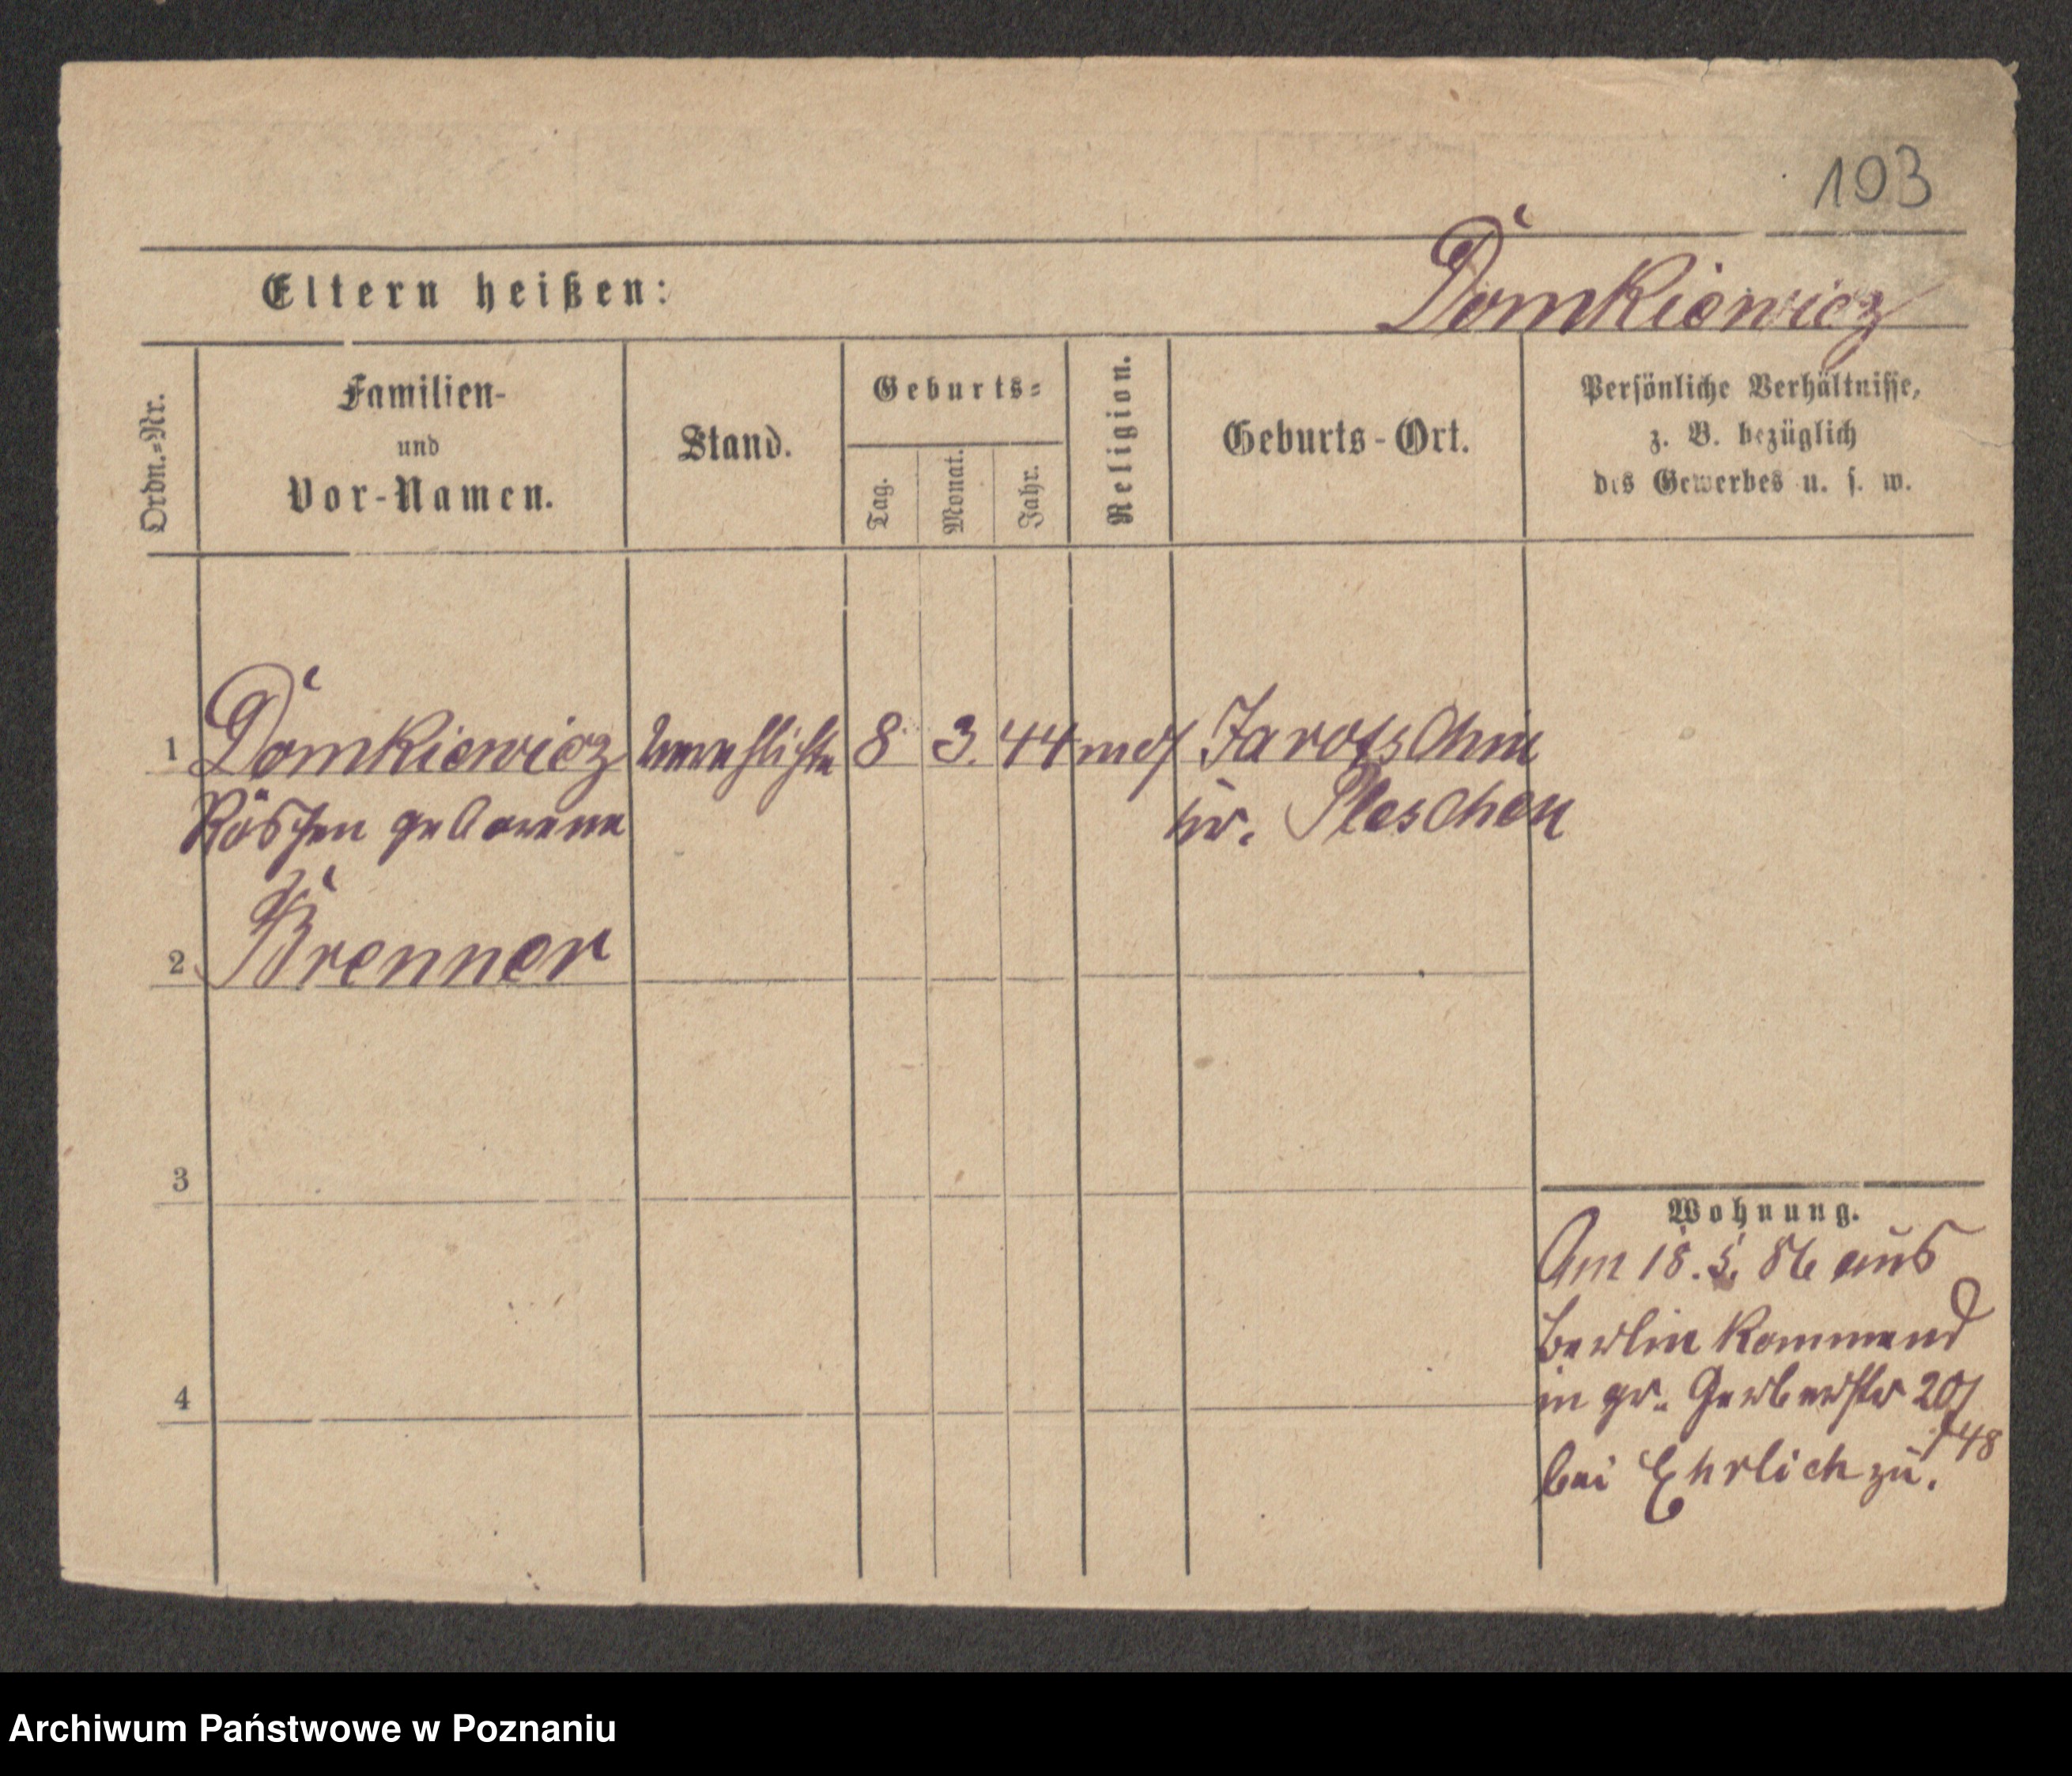 103
Eltern heißen: Domkiewicz
Ordn.=Nr.
Familien-
und
Vor-Namen.
Stand.
Geburts=
Tag.
Monat.
Jahr.
Religion.
Geburts-Ort.
Persönliche Verhältnisse,
z. B. bezüglich
des Gewerbes u. s. w.
1 Domkiewicz 8 3. 44 Jarotschin
Röschen geborene kr. Pleschen
2 Brenner
3
4
Wohnung.
Am 18. 5. 86 aus
Berlin kommend
in gr. Gerberstr 20/
48
bei Ehrlich zu.
Archiwum Państwowe w Poznaniu